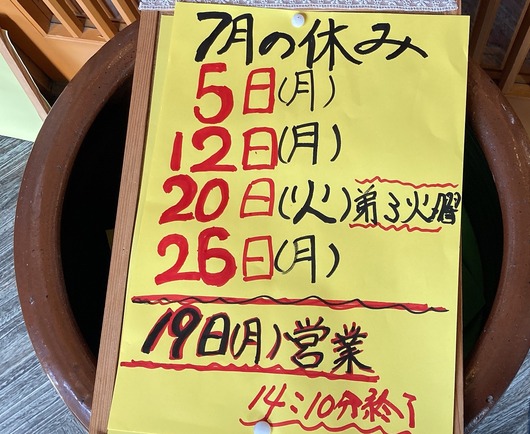 7月の休み
5日(月)
12日(月)
20日(火)第3火曜
26日(月)
19日(月)営業
14:10分終了